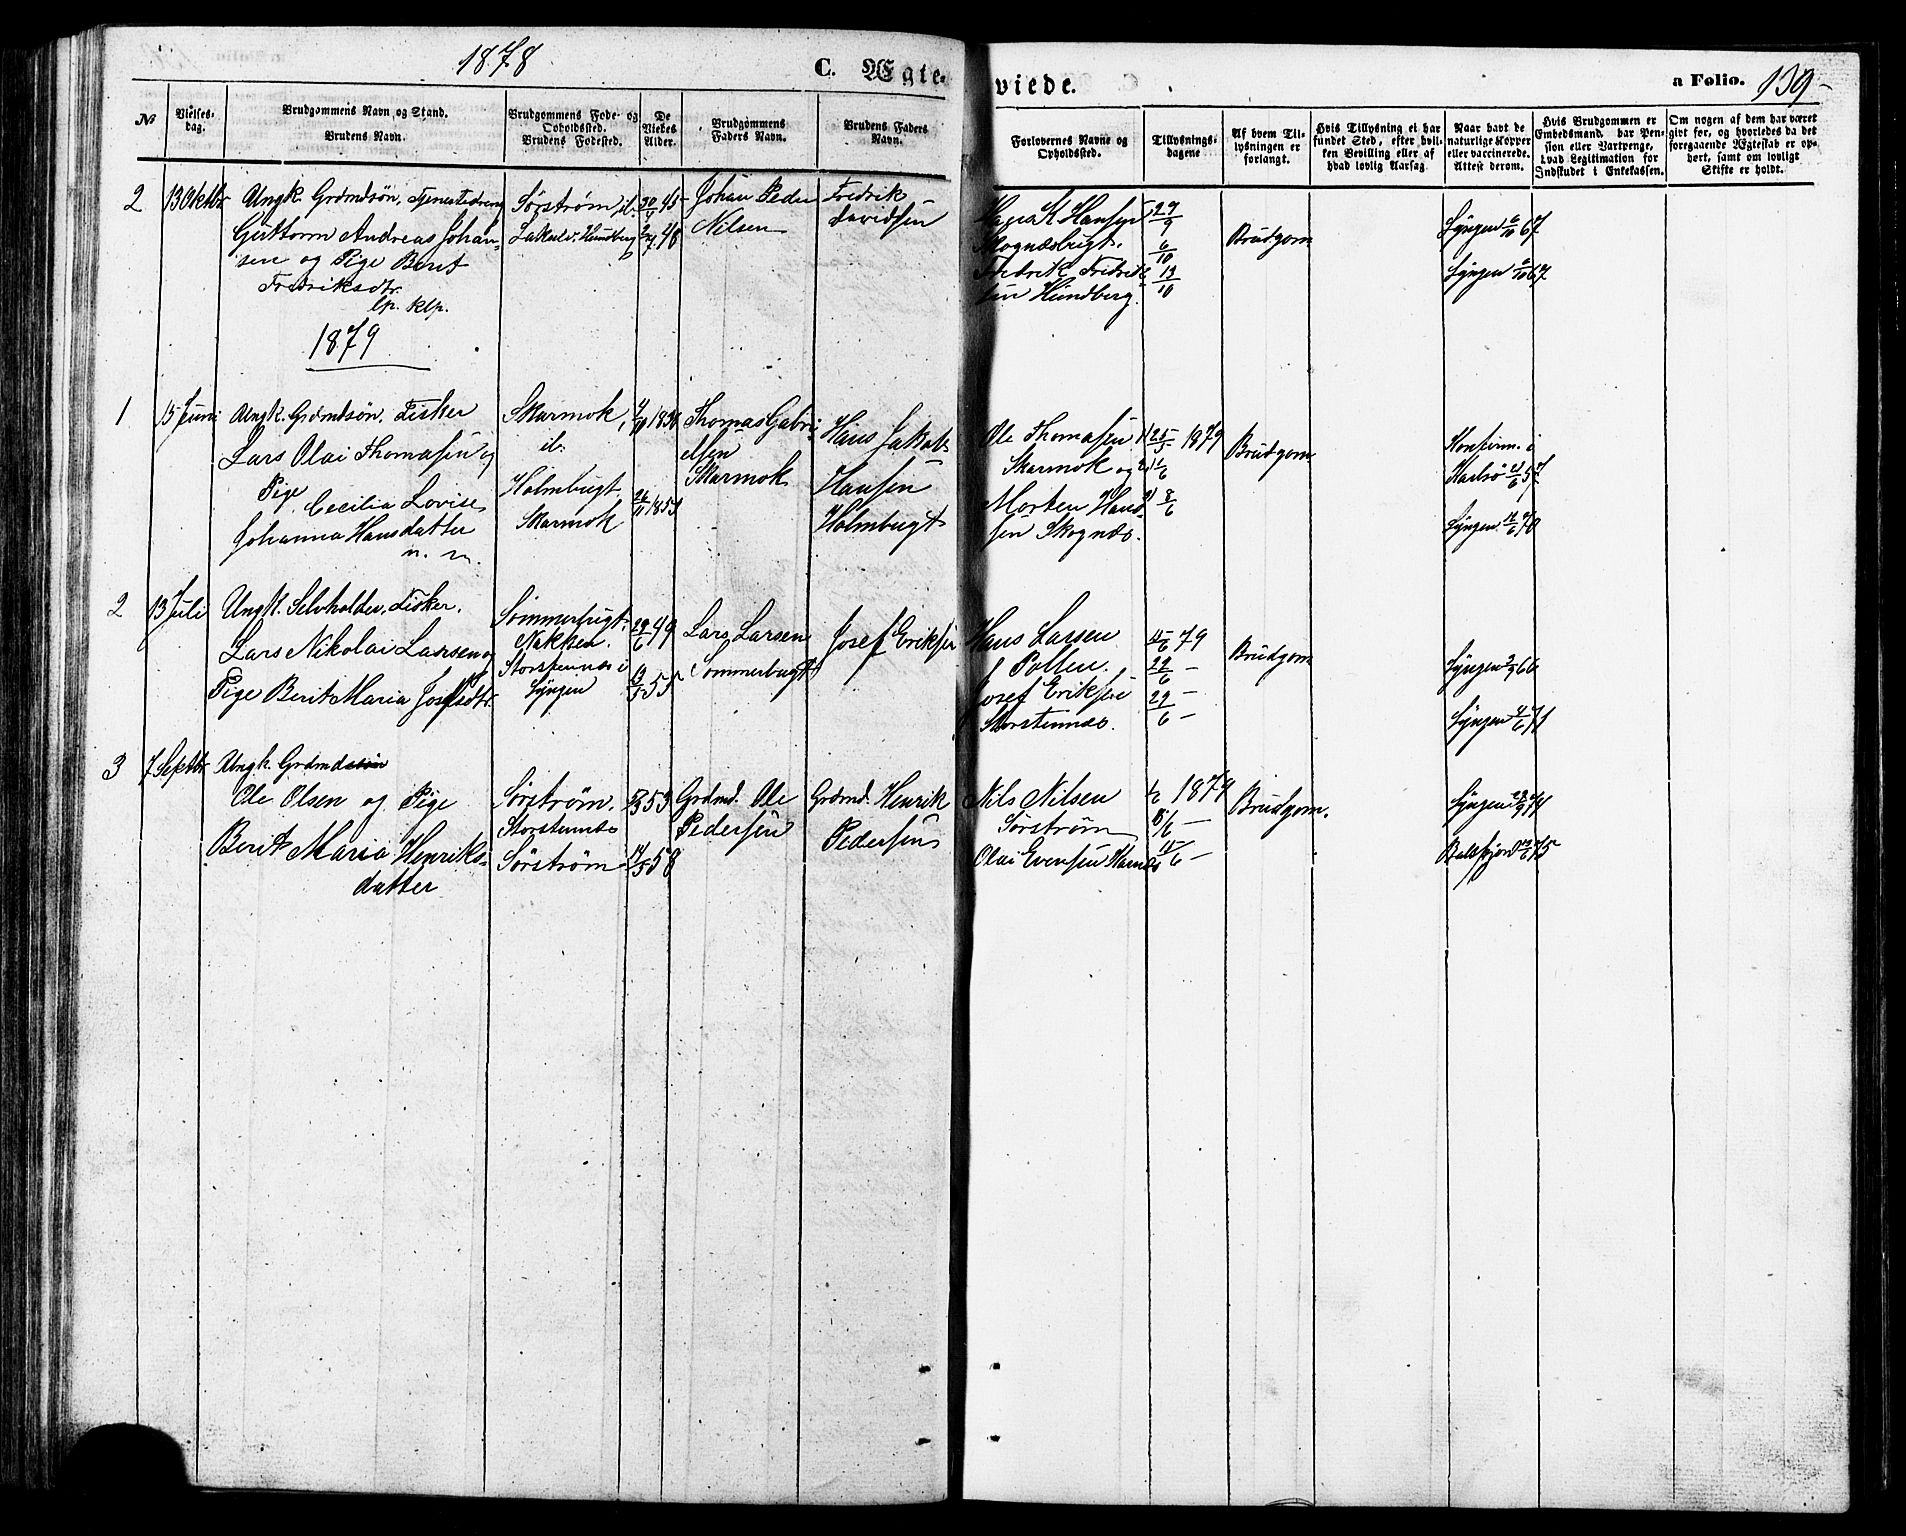 1878
C. Ægte-
viede.
a Folio. 139
№
Vielses-
dag.
Brudgommens Navn og Stand.
Brudens Navn.
Brudgommens Føde- og
Opholdssted.
Brudens Fødested.
De
Viedes
Alder.
Brudgommens
Faders Navn.
Brudens Faders
Navn.
Forlovernes Navne og
Opholdssted.
Tillysnings-
dagene
Af hvem Til-
lysningen er
forlangt.
Hvis Tillysning ei har
fundet Sted, efter hvil-
ken Bevilling eller af
hvad lovlig Aarsag.
Naar havt de
naturlige Kopper
eller vaccinerede.
Attest derom.
Hvis Brudgommen er
Embedsmand, har Pen-
sion eller Vartpenge,
hvad Legitimation for
Indskudet i Enkekassen.
Om nogen af dem har været
gift før, og hvorledes da det
foregaaende Ægteskab er op-
hørt, samt om lovligt
Skifte er holdt.
2
13 Oktbr
Ungk. Grdmdsön, Tjenestedreng
Guttorm Andreas Johan-
sen og Pige Berit
Fredriksdtr.
lp. klp.
Sørstrøm
Lakselv. Hundberg
45
48
Johan Peder
Nilsen
Fredrik
Davidsen
Hansen
Skognæsbugt.
Fredrik Fredrik
sen Hundberg.
29/9
6/10
13/10
Brudgom
Lyngen 6/10 67
Lyngen 6/10 67
1879
1
15 Juni
Ungk. Grdmdsön. Fisker
Lars Olai Thomasen og
Pige
Cecilia Lovise
Johanna Hansdatter
n. n.
Skarmok,
Holmbugt
Skarmok
1853
Thomas Gabri
elsen
Skarmok
Hans Jakob
Hansen
Holmbugt
Ole Thomasen
Skarmok og
Morten Hand
sen Skognæs.
1) 25/5 1879
2) 1/6
3) 8/6
Brudgom
Konfirm. i
Karlsö 57
Lyngen 70
2
13 Juli
Ungk. Selvholder, Fisker.
Lars Nikolai Larsen og
Pige Berit Maria Josefsdtr.
Sommerbugt.
Nakken.
Storstennæs i
Lyngen
29/6 49
55
Lars Larsen
Sommerbugt
Josef Eriksen
Hans Larsen
Pollen.
Josef Eriksen
Storstennæs.
15/6 79
22/6 –
29/6 –
Brudgom
Lyngen 66
Lyngen 71
3
7 Septbr
Ungk. Grdmdsön
Ole Olsen og Pige
Berit Maria Henriks-
datter
Sørstrøm.
Storstennæs
Sørstrøm
53
58
Grdmd. Ole
Pedersen
Grdmd. Henrik
Pedersen
Nils Nilsen
Sørstrøm
Olai Evensen Hamnes
1/6 1879
8/6 –
15/6 –
Brudgom.
Lyngen 71
Balsfjord 75